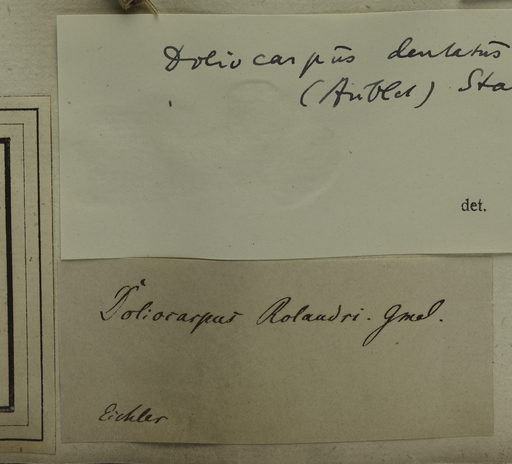 Doliocarpus dentatus
(Aublet) Sta
det.
Doliocarpus Rolandri. Gmel.
Eichler